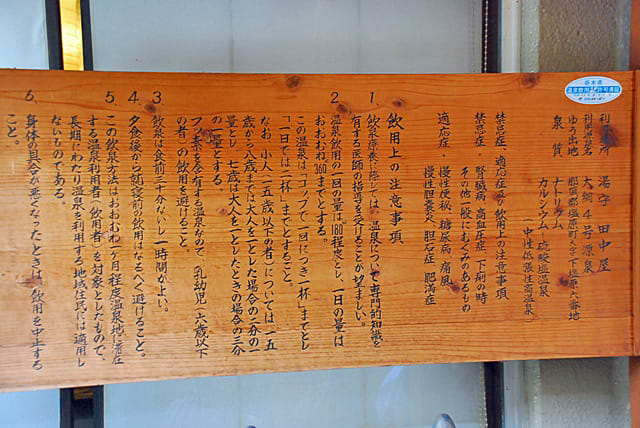 栃木県
温泉飲用許可済証
利用場所 湯守 田中屋
利用源泉名 大網4号源泉
ゆう出地 那須郡塩原町大字下塩原六番地
泉質 ナトリウム カルシウム 硫酸塩温泉
(中性低張性高温泉)
禁忌症、適応症及び飲用上の注意事項
禁忌症・腎臓病、高血圧症、下痢の時
その他一般にむくみのあるもの
適応症・慢性便秘、糖尿病、痛風
慢性胆嚢炎、胆石症、肥満症
飲用上の注意事項
1. 飲泉療養に際しては、温泉について専門的知識を
有する医師の指導を受けることが望ましい。
2. 温泉飲用の一回の量は180程度とし、一日の量は
おおむね、360までとする。
この温泉は「コップで一回につき一杯」までとし
「一日では二杯」までとすること。
なお、小人(一五歳以下の者)については、一五
歳から八歳までは大人を一とした場合の二分の一
量とし、七歳は大人を一としたときの場合の三分
の一量とする。
フッ素を含有する温泉なので、(乳幼児(六歳以下
の者)の飲用を避けること。
3. 飲泉は食前三十分ないし一時間がよい。
4. 夕食後から就寝前の飲用はなるべく避けること。
5. この飲泉方法はおおむね一ヶ月程度温泉地に滞在
する温泉利用者(飲用者)を対象としたもので、
長期にわたり温泉を利用する地域住民には適用し
ないものである。
6. 身体の具合が悪くなったときは、飲用を中止する
こと。